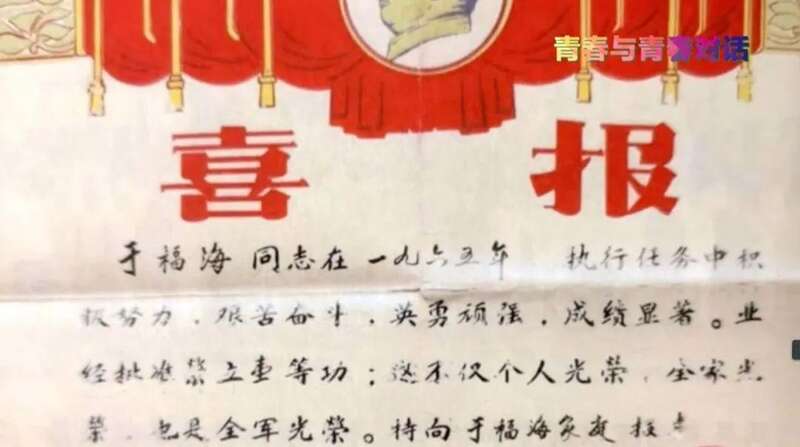 青春与青春对话
喜报
于福海同志在一九六五年 执行任务中积
极努力，艰苦奋斗，英勇顽强，成绩显著。业
经批准荣立壹等功；这不仅个人光荣，全家光
荣，也是全军光荣。特向于福海家庭报